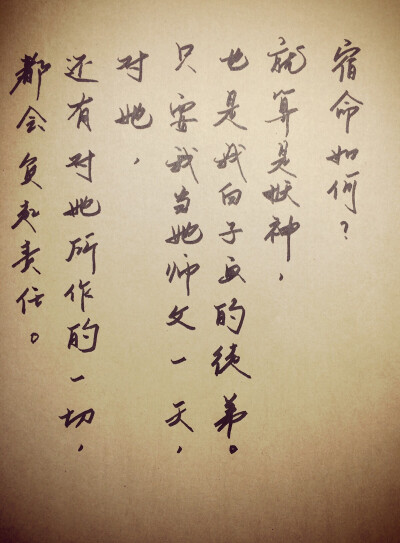 宿命如何？
就算是妖神，
也是我白子画的徒弟。
只要我当她师父一天，
对她，
还有对她所作的一切，
都会负起责任。